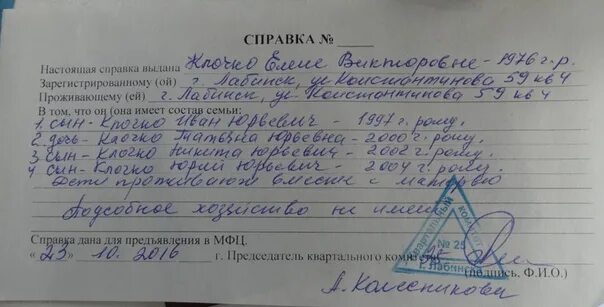 СПРАВКА № ____
Настоящая справка выдана Клочко Елене Викторовне - 1976 г.р.
Зарегистрированному (ой) г. Лабинск, ул. Константинова 59 кв 4
Проживающему (ей) г. Лабинск, ул. Константинова 59 кв 4
В том, что он (она имеет состав семьи:
1. сын - Клочко Иван Юрьевич - 1997 г. рожд.
2. дочь - Клочко Татьяна Юрьевна - 2000 г. рожд.
3 сын - Клочко Никита Юрьевич - 2002 г. рожд.
4 сын - Клочко Юрий Юрьевич - 2004 г. рожд.
Дети проживают вместе с матерью
Подсобное хозяйство не имеет
Справка дана для предъявления в МФЦ.
«23» 10. 2016 г. Председатель квартального комитета
(подпись, Ф.И.О.)
А. Колесникова
Квартальный комитет
№ 25
г. Лабинск